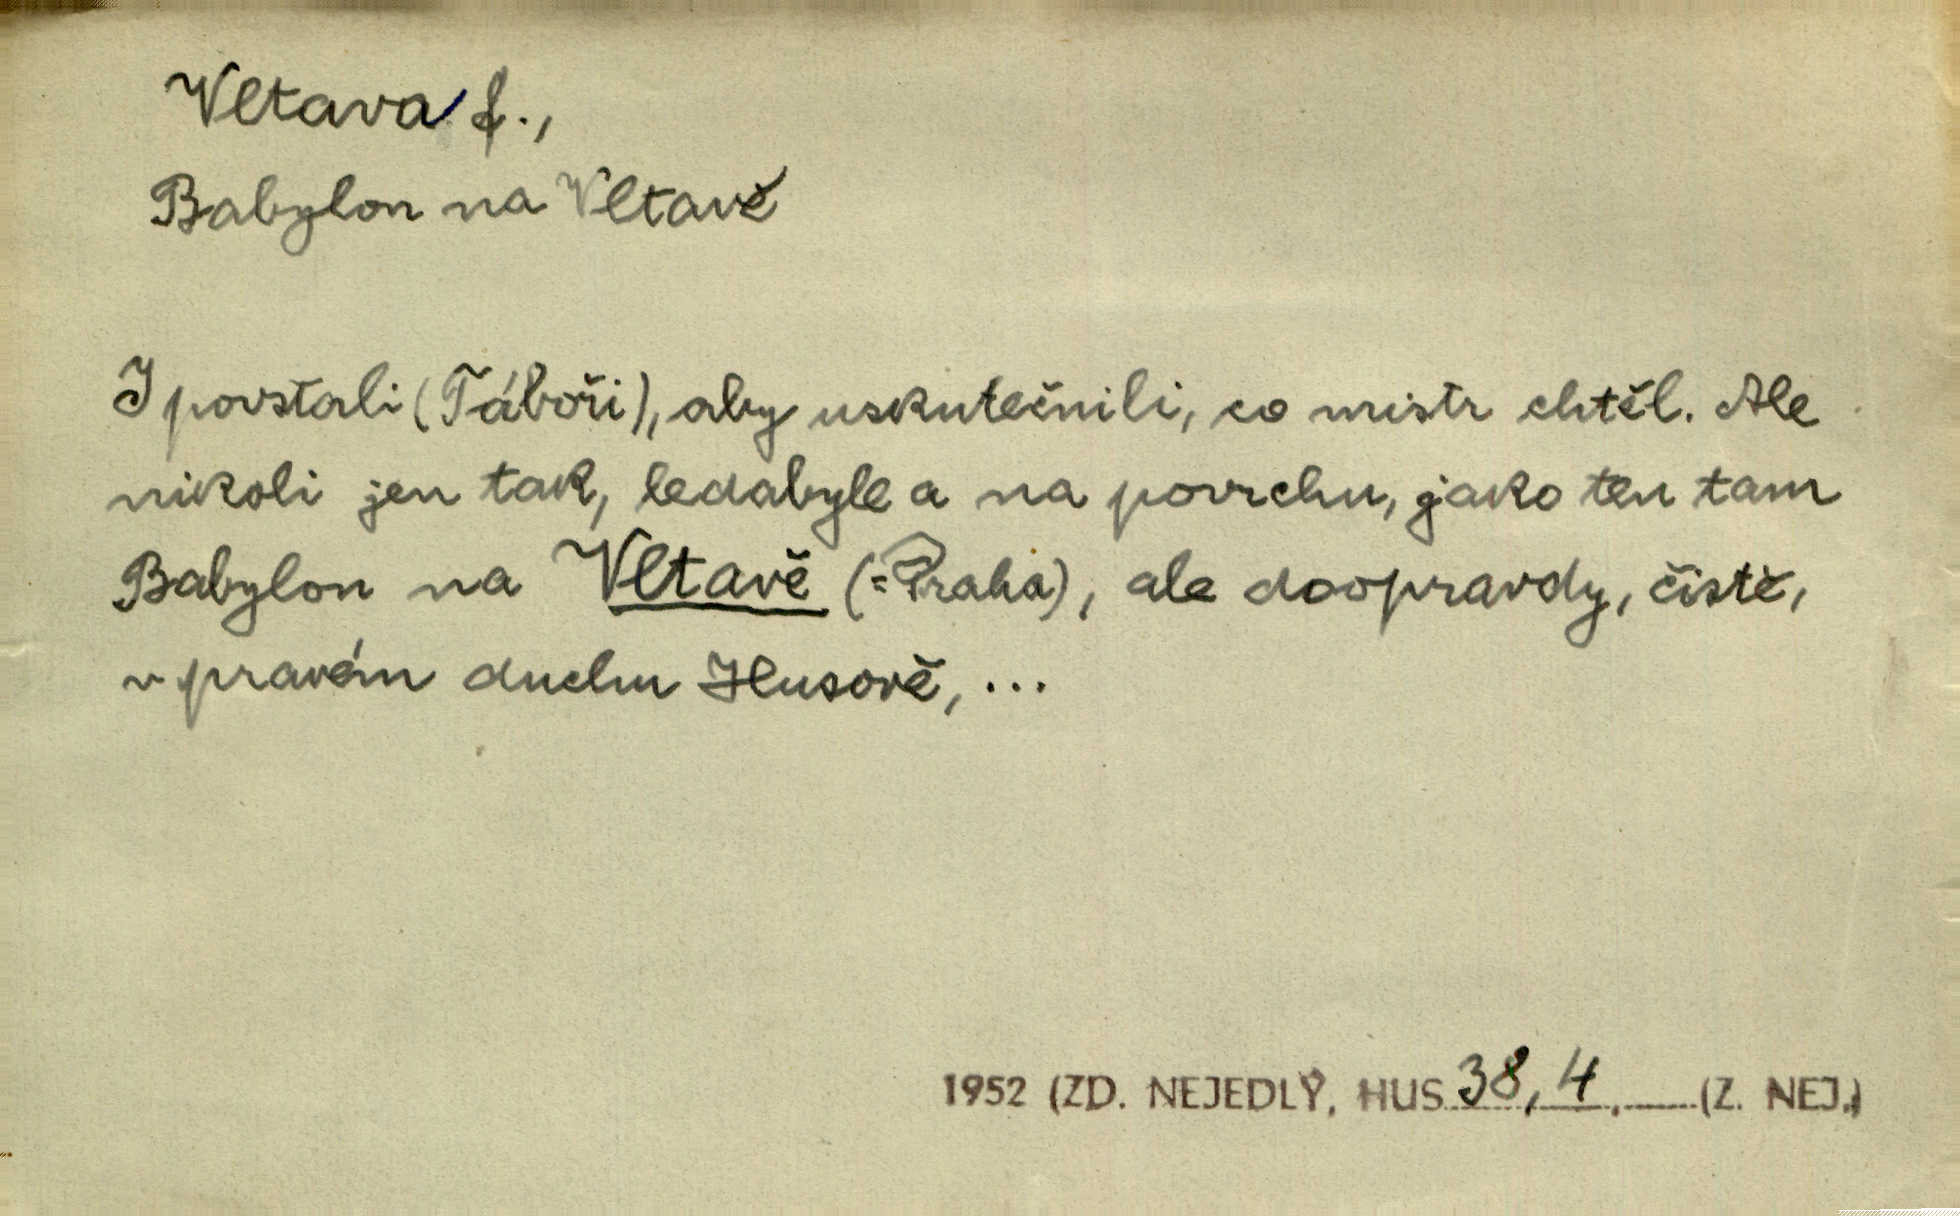 Vltava f.,
Babylon na Vltavě
I povstali (Táboři), aby uskutečnili, co mistr chtěl. Ale
nikoli jen tak, ledabyle a na povrchu, jako ten tam
Babylon na Vltavě (=Praha), ale doopravdy, čistě,
v pravém duchu Husově, ...
1952 (ZD. NEJEDLÝ, HUS 38, 4. (Z. NEJ.)